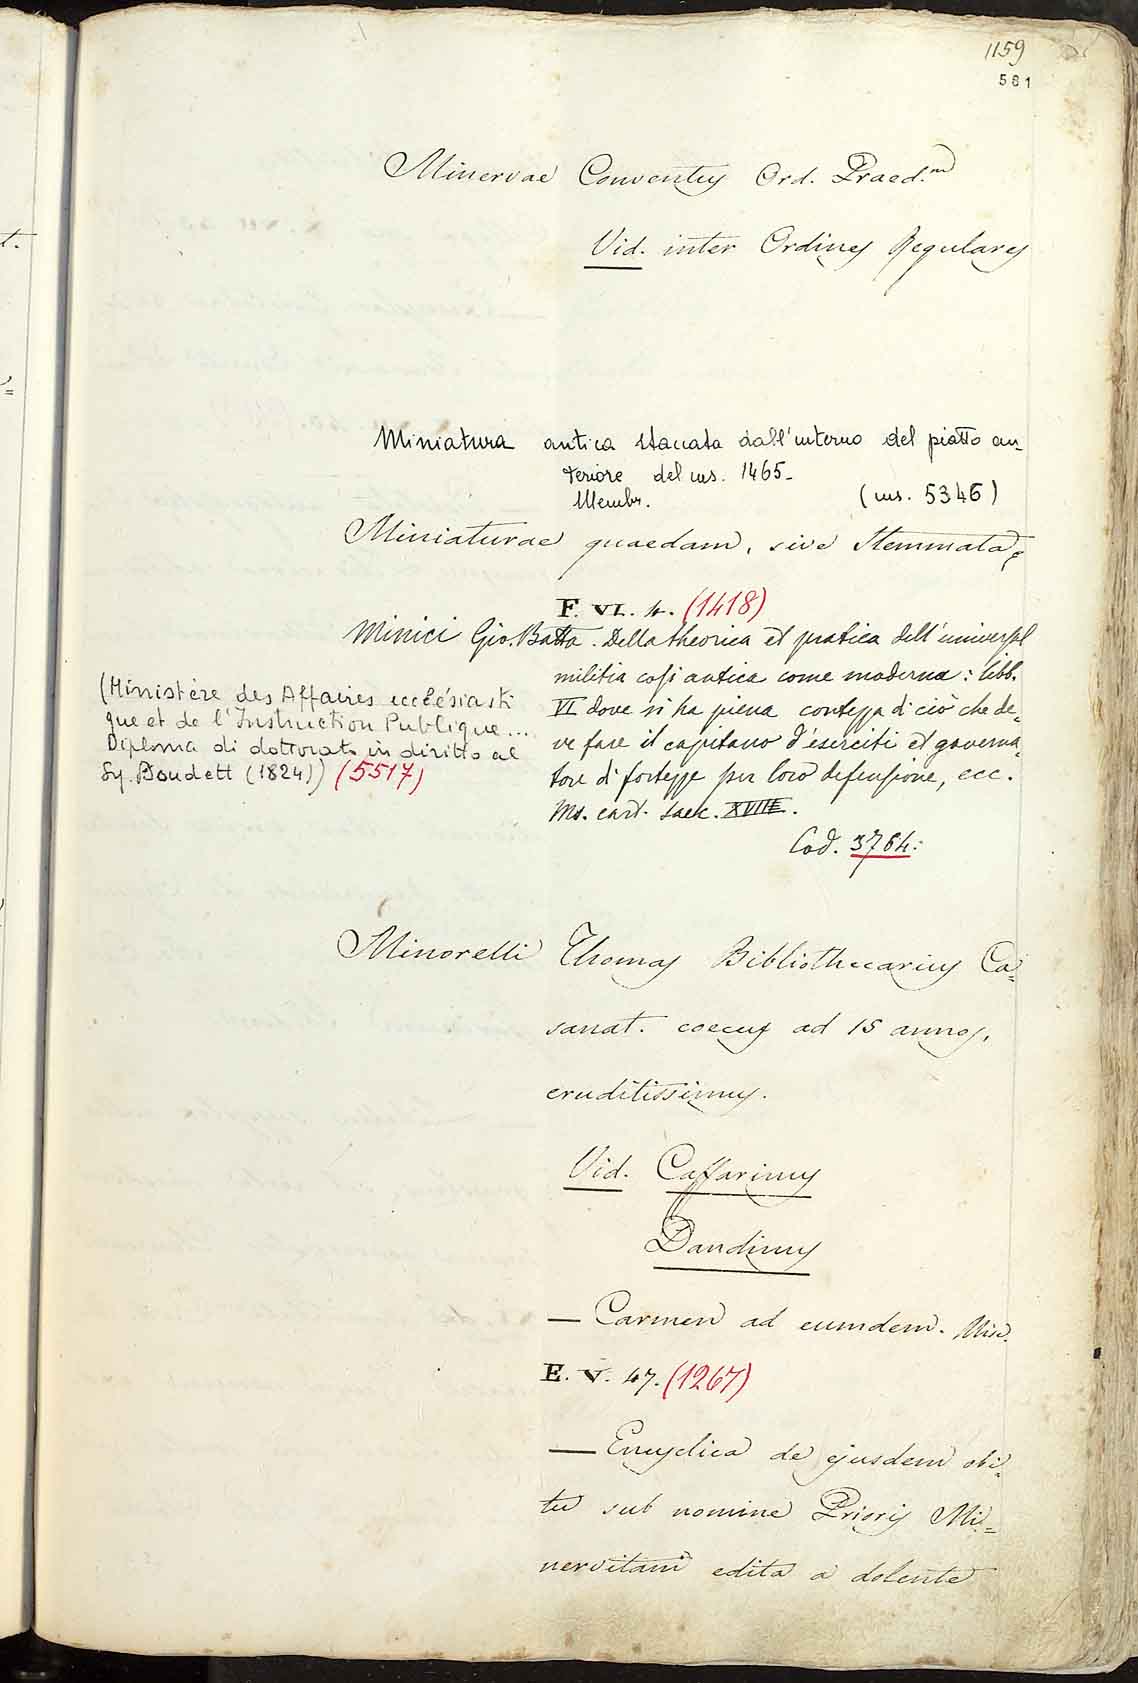 1159
581
Minervae Conventus Ord. Praed.m
Vid. inter Ordines Regulares
Miniatura antica staccata dall'interno del piatto an-
teriore del ms. 1465-
Membr. (ms. 5346)
Miniaturae quaedam, sive Stemmata,
F. VI. 4. (1418)
Minici Gio. Batta. Della theorica et pratica dell'universal
militia cosi antica come moderna: libb.
VI dove si ha piena contezza di ciò che de-
ve fare il capitano d'eserciti et governa-
tore di fortezze per loro defensione, ecc.
Ms. cart. saec. XVIII.
Cod. 3764.
(Ministère des Affaires ecclésiasti
que et de l'Instruction Publique...
Diploma di dottorato in diritto al
Sg. Boudett (1824)) (5517)
Minorelli Thomas Bibliothecarius Ca=
sanat. coecus ad 15 annos,
eruditissimus.
Vid. Caffarinus
Dandinus
— Carmen ad eumdem. Misc.
E. V. 47. (1267)
— Encyclica de ejusdem obi=
tu sub nomine Prioris Mi=
nervitani edita a dolente